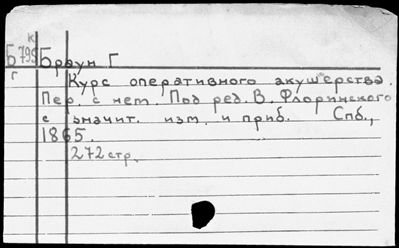 к
Б 795
Браун Г
г
Курс оперативного акушерства
Пер. с нем. Под ред. В. Флоринского
с значит. изм. и приб. Спб.,
1865.
272 стр.